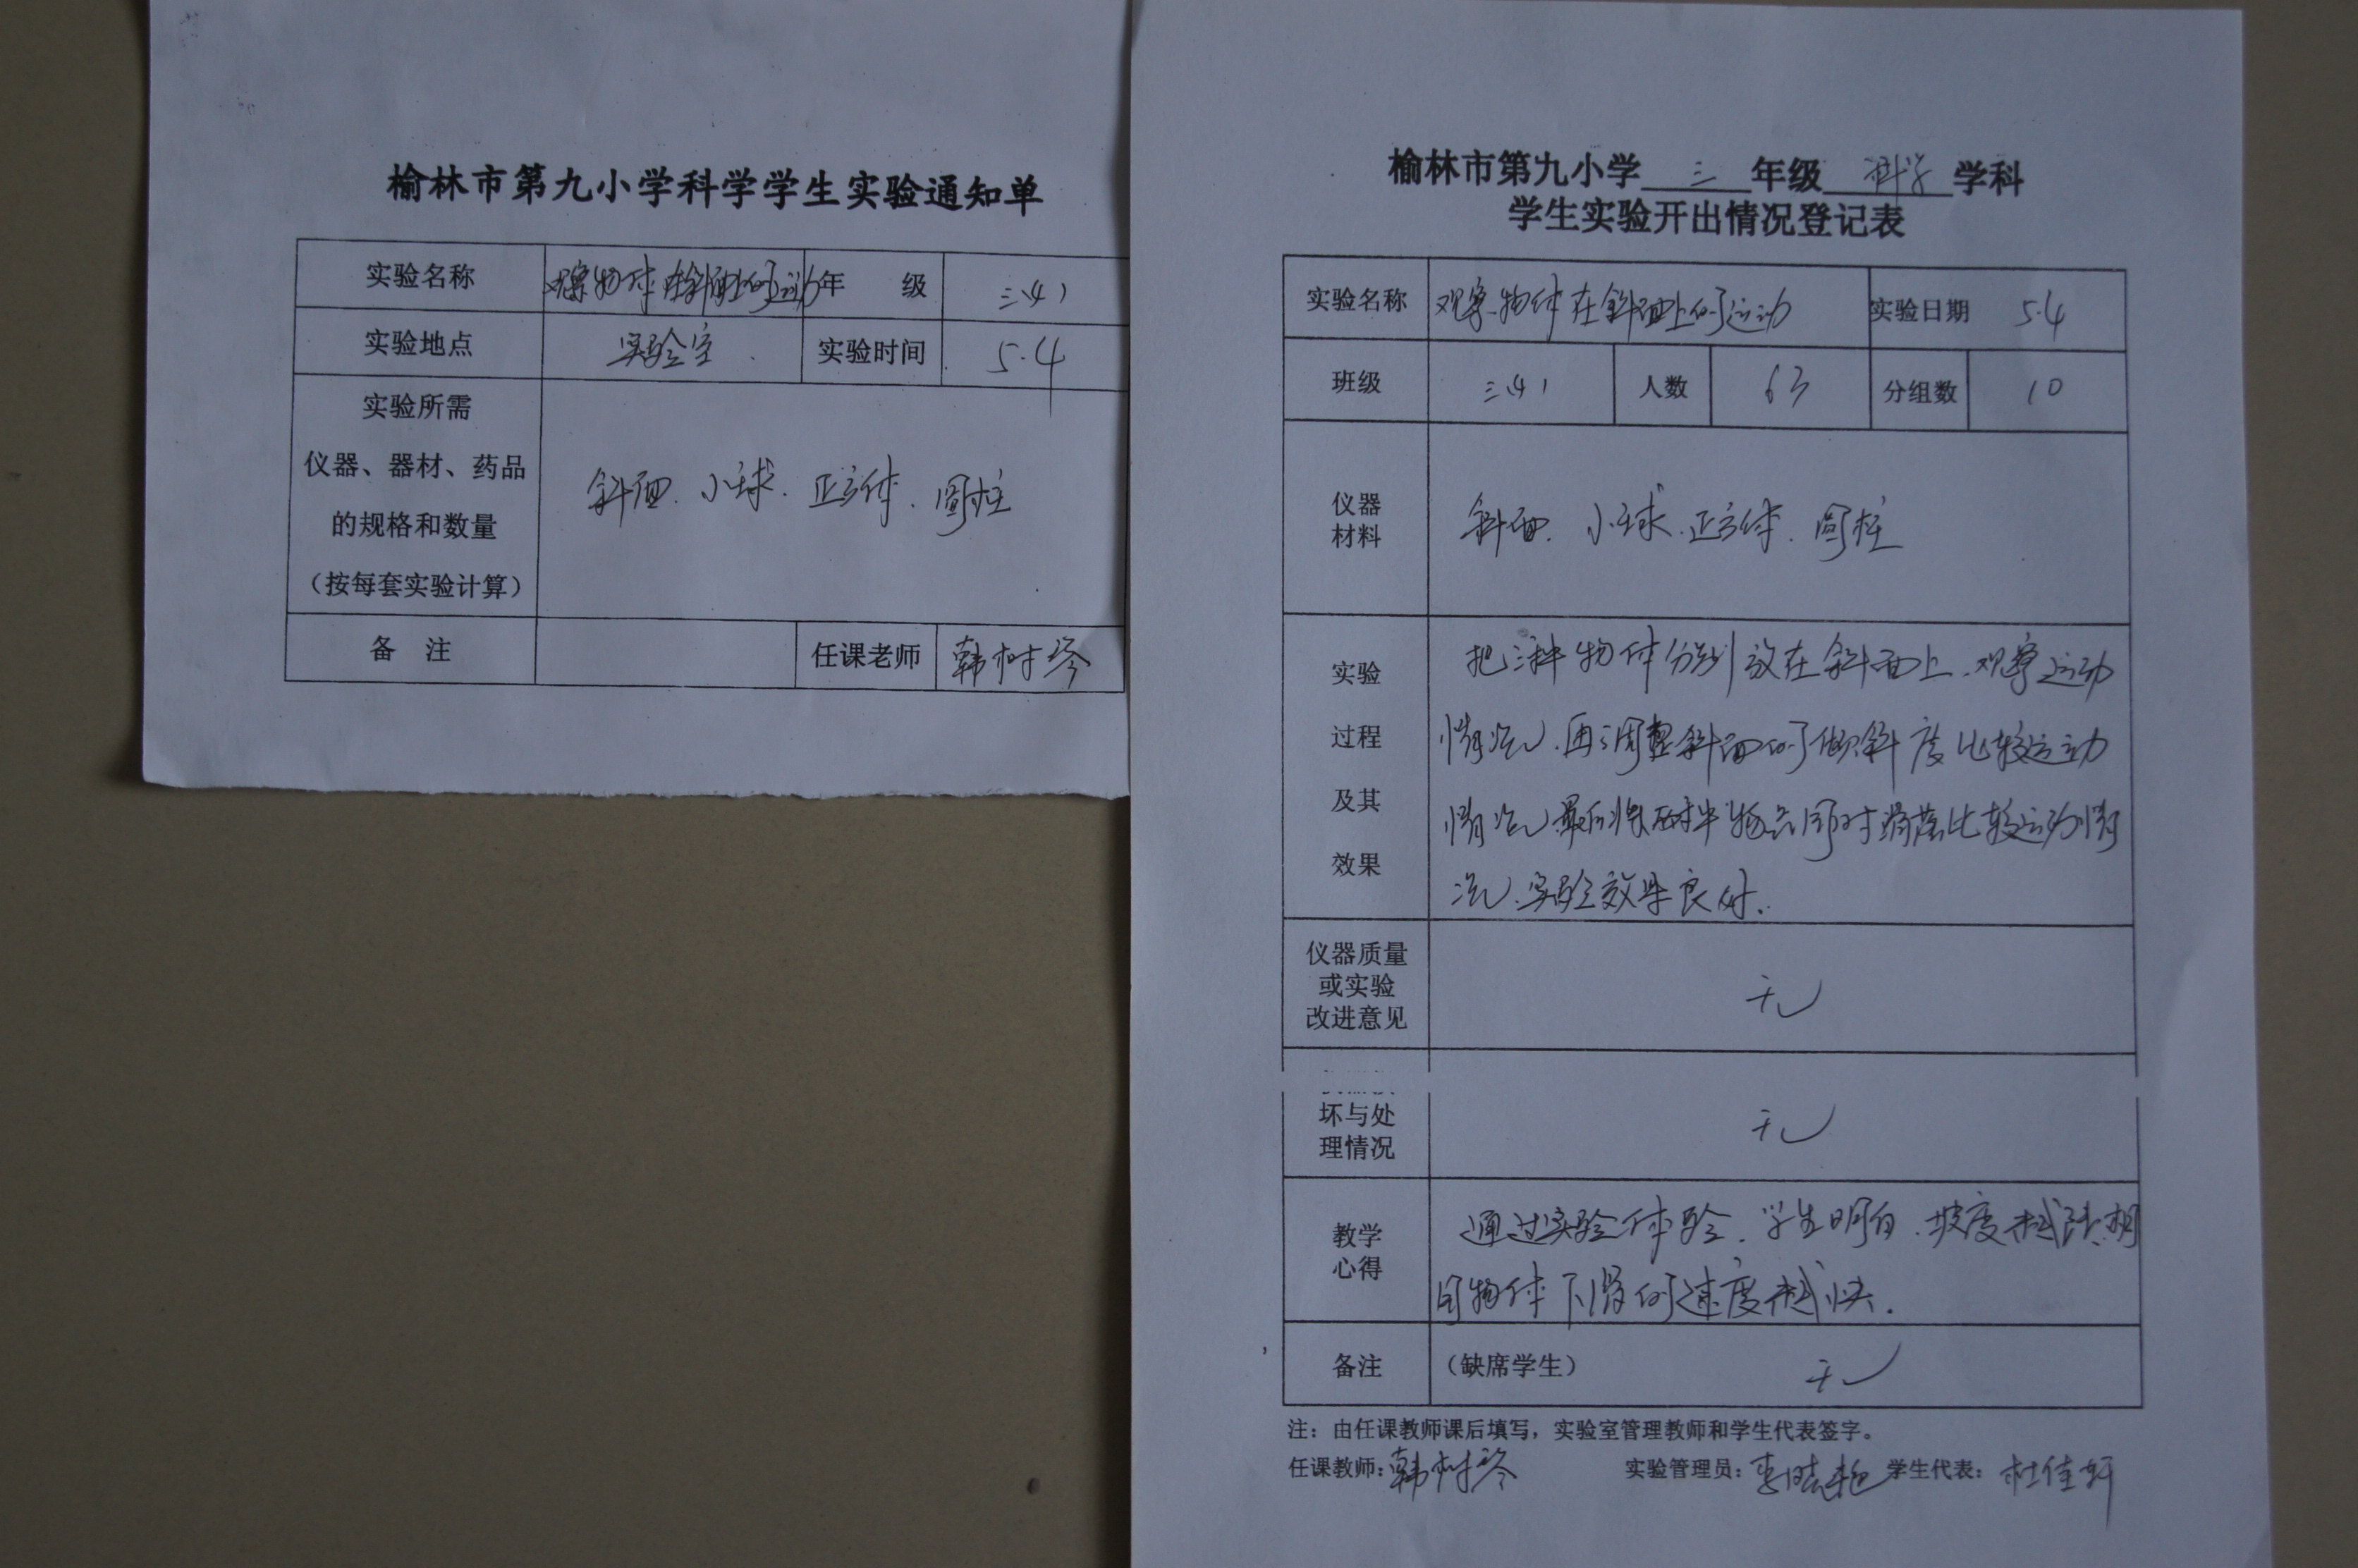 榆林市第九小学科学学生实验通知单
实验名称 观察物体在斜面上的运动 年 级 三(4)
实验地点 实验室 实验时间 5.4
实验所需
仪器、器材、药品
的规格和数量
（按每套实验计算）
斜面、小球、正方体、圆柱
备 注 任课老师 韩树琴
榆林市第九小学 三 年级 科学 学科
学生实验开出情况登记表
实验名称 观察物体在斜面上的运动 实验日期 5.4
班级 三(4) 人数 63 分组数 10
仪器
材料
斜面、小球、正方体、圆柱
实验
过程
及其
效果
把三种物体分别放在斜面上，观察运动
情况，再调整斜面的倾斜度比较运动
情况，最后将物品同时滑落比较运动情
况，实验效果良好。
仪器质量
或实验
改进意见
无
坏与处
理情况
无
教学
心得
通过实验体验，学生明白，坡度越陡，相
同物体下滑的速度越快。
备注 （缺席学生） 无
注：由任课教师课后填写，实验室管理教师和学生代表签字。
任课教师：韩树琴 实验管理员：李晓艳 学生代表：杜佳轩